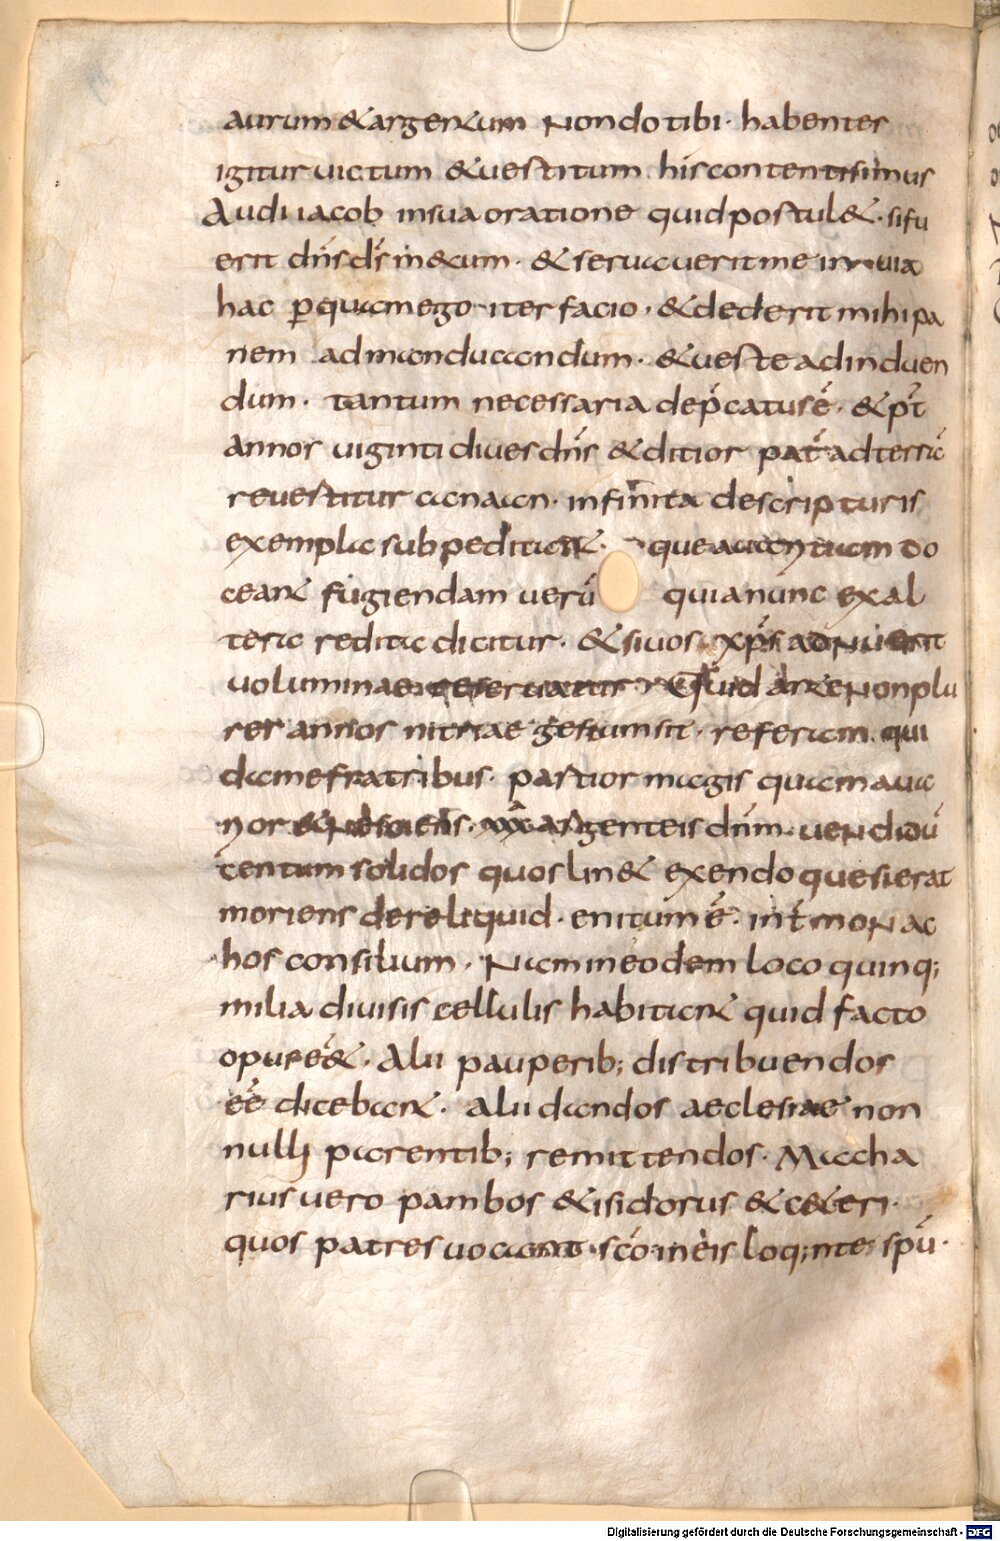 aurum & argentum Non do tibi· habentes
igitur uictum & uestitum his contenti simus
Audi iacob in sua oratione quid postul&· si fu
erit dn̄s d̄s mecum· & seruauerit me in uia
hac p̱ quam ego iter facio· & dederit mihi pa
nem ad manducandum· & ueste ad induen
dum· tantum necessaria dep̄catus ē· & p̄t
annos uiginti diues dn̄s & ditior pat̄ ad terrā
reuertitur canaan· infinita de scripturis
exempla subpeditant· que auaritiam do
ceant fugiendam uerū quia nunc ex al
tera redita dicitur· & si uos xp̄s adNuerit
uolumina Quid ante Non plu
res annos nitriae gestum sit· referam qui
dam e fratribus· partior magis quam aua
rior & nesciens· xxx argenteis dnm· uendidū
centum solidos quos lin& exendo quesierat
moriens derelequid· enitum ē· int̄ moNac
hos consilium· Nam in eodem loco quinq;
milia diuisis cellulis habitant quid facto
opus e&· Alii pauperib; distribuendos
eē dicebant· Alii dandos aeclesiae non
nulli parentib; remittendos· Macha
rius uero pambos & isidorus & ceteri·
quos patres uocant· sc̄o in eis loq;nte spū·
Digitalisierung gefördert durch die Deutsche Forschungsgemeinschaft - DFG